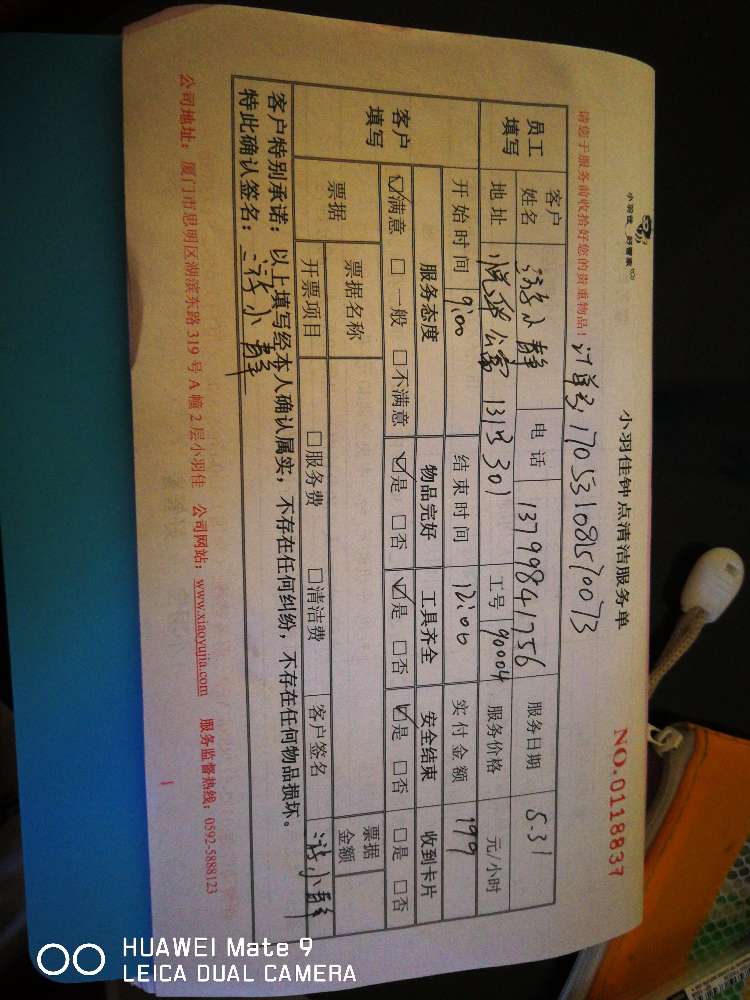 小羽佳 好管家
小羽佳钟点清洁服务单
NO.0118837
请您于服务前收拾好您的贵重物品!
订单号170531081570073
员工填写
客户姓名 小静 电话 13799841756 服务日期 5.31
地址 悦华公寓 13号301 工号 90004 服务价格 元/小时
开始时间 9:00 结束时间 12:00 实付金额 199
客户填写
服务态度 物品完好 工具齐全 安全结束 收到卡片
☑满意 □一般 □不满意 ☑是 □否 ☑是 □否 ☑是 □否 □是 □否
票据 票据名称 票据金额
开票项目 □服务费 □清洁费 客户签名 小静
客户特别承诺:以上填写经本人确认属实,不存在任何纠纷,不存在任何物品损坏。
特此确认签名: 小静
公司地址:厦门市思明区湖滨东路 319 号 A 幢 2 层小羽佳 公司网站:www.xiaoyujia.com 服务监督热线:0592-5888123
HUAWEI Mate 9
LEICA DUAL CAMERA